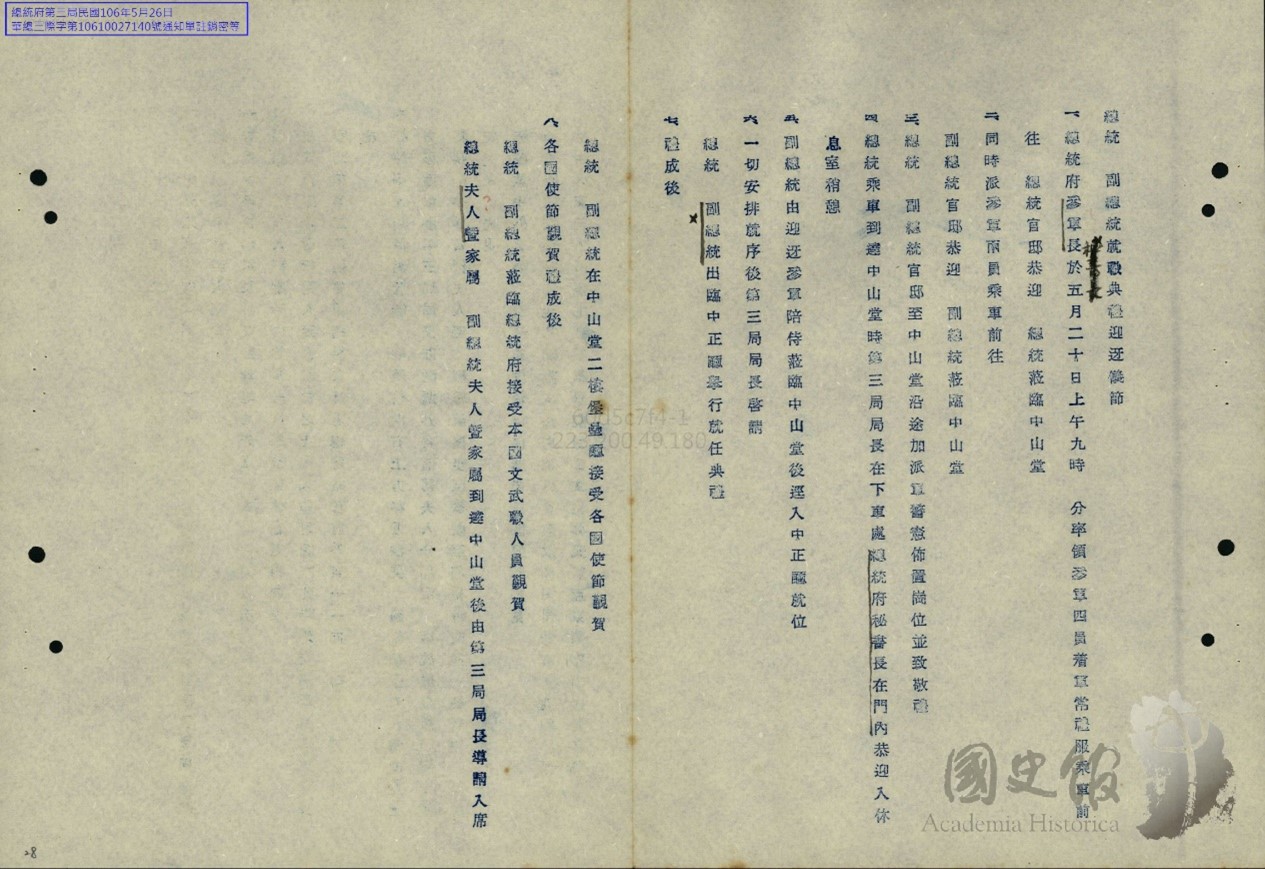 總統府第三局民國106年5月26日
華總三際字第10610027140號通知單註銷密等
總統　副總統就職典禮迎迓儀節
一、總統府參軍長於五月二十日上午九時　分率領參軍四員着軍常禮服乘車前
往　總統官邸恭迎　總統蒞臨中山堂
二、同時派參軍兩員乘車前往
副總統官邸恭迎　副總統蒞臨中山堂
三、總統　副總統官邸至中山堂沿途加派軍警憲佈置崗位並致敬禮
四、總統乘車到達中山堂時第三局局長在下車處總統府秘書長在門內恭迎入休
息室稍憩
五、副總統由迎迓參軍陪侍蒞臨中山堂後逕入中正廳就位
六、一切安排就序後第三局局長啓請
總統　副總統出臨中正廳舉行就任典禮
七、禮成後
總統　副總統在中山堂二樓堡壘廳接受各國使節覲賀
八、各國使節覲賀禮成後
總統　副總統蒞臨總統府接受本國文武職人員覲賀
總統夫人暨家屬　副總統夫人暨家屬到達中山堂後由第三局局長導請入席
28
國史館
Academia Historica